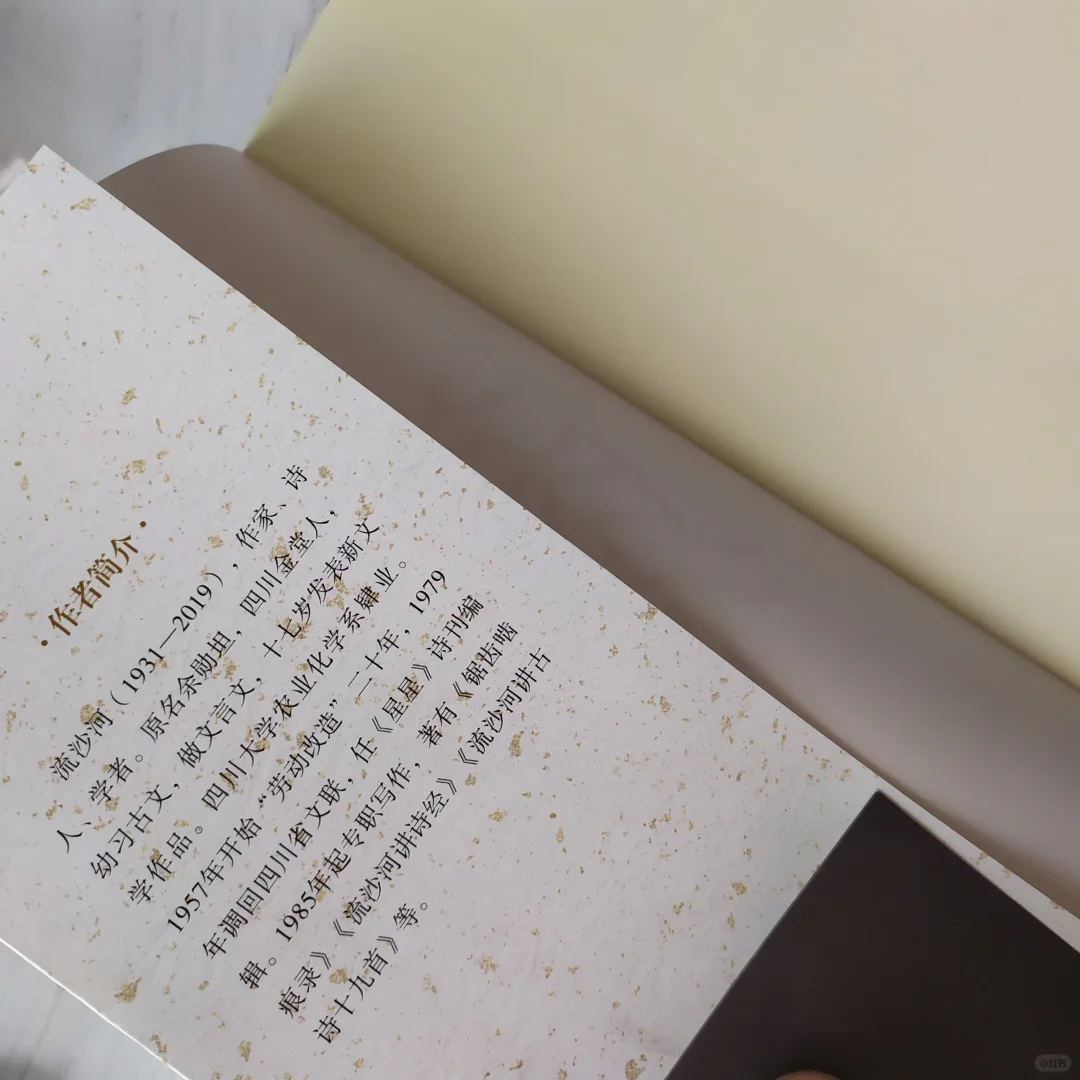 ·作者简介·
流沙河（1931—2019），作家、诗
人、学者。原名余勋坦，四川金堂人，
幼习古文，做文言文，十七岁发表新文
学作品。四川大学农业化学系肄业。
1957年开始“劳动改造”二十年，1979
年调回四川省文联，任《星星》诗刊编
辑。1985年起专职写作，著有《锯齿啮
痕录》《流沙河讲诗经》《流沙河讲古
诗十九首》等。
小红书